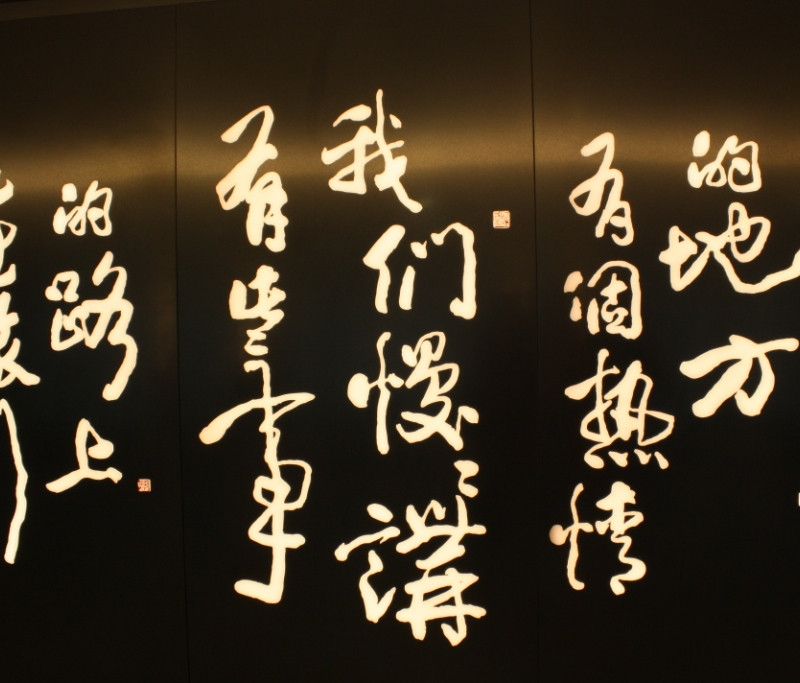 的地方
有個熱情
我们慢慢講
有些事
的路上